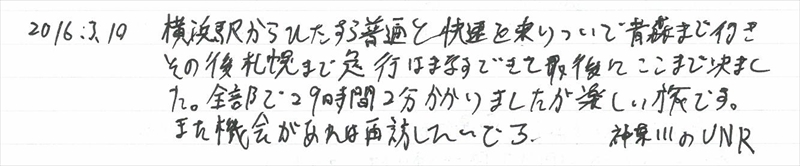 2016.3.19 横浜駅からひたすら普通と快速を乗りついで青森まで行き
その後札幌まで急行はまなすできて最後にここまで来まし
た。全部で29時間2分かかりましたが楽しい旅です。
また機会があれば再訪したいです。 神奈川のUNR